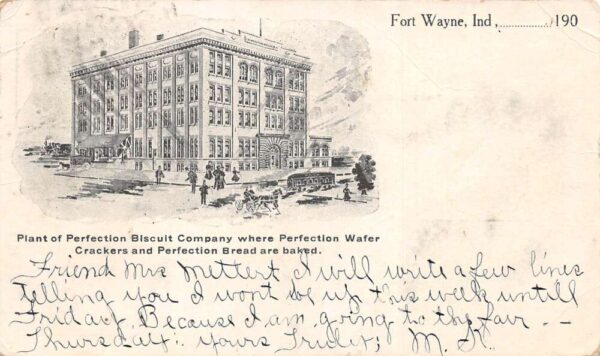 Fort Wayne, Ind.,................190
Plant of Perfection Biscuit Company where Perfection Wafer
Crackers and Perfection Bread are baked.
Friend Mrs Mettert I will write a few lines
telling you I wont be up this week untill
Friday. Because I am going to the fair --
Thursday. yours Truly; M.